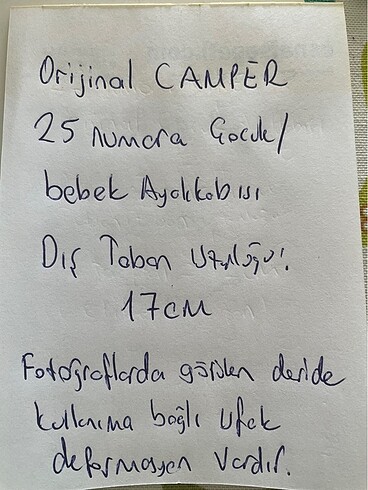 Orijinal CAMPER
25 numara Çocuk/
bebek Ayakkabısı
Dış Taban Uzunluğu:
17cm
Fotoğraflarda görülen deride
kullanıma bağlı ufak
deformasyon vardır.